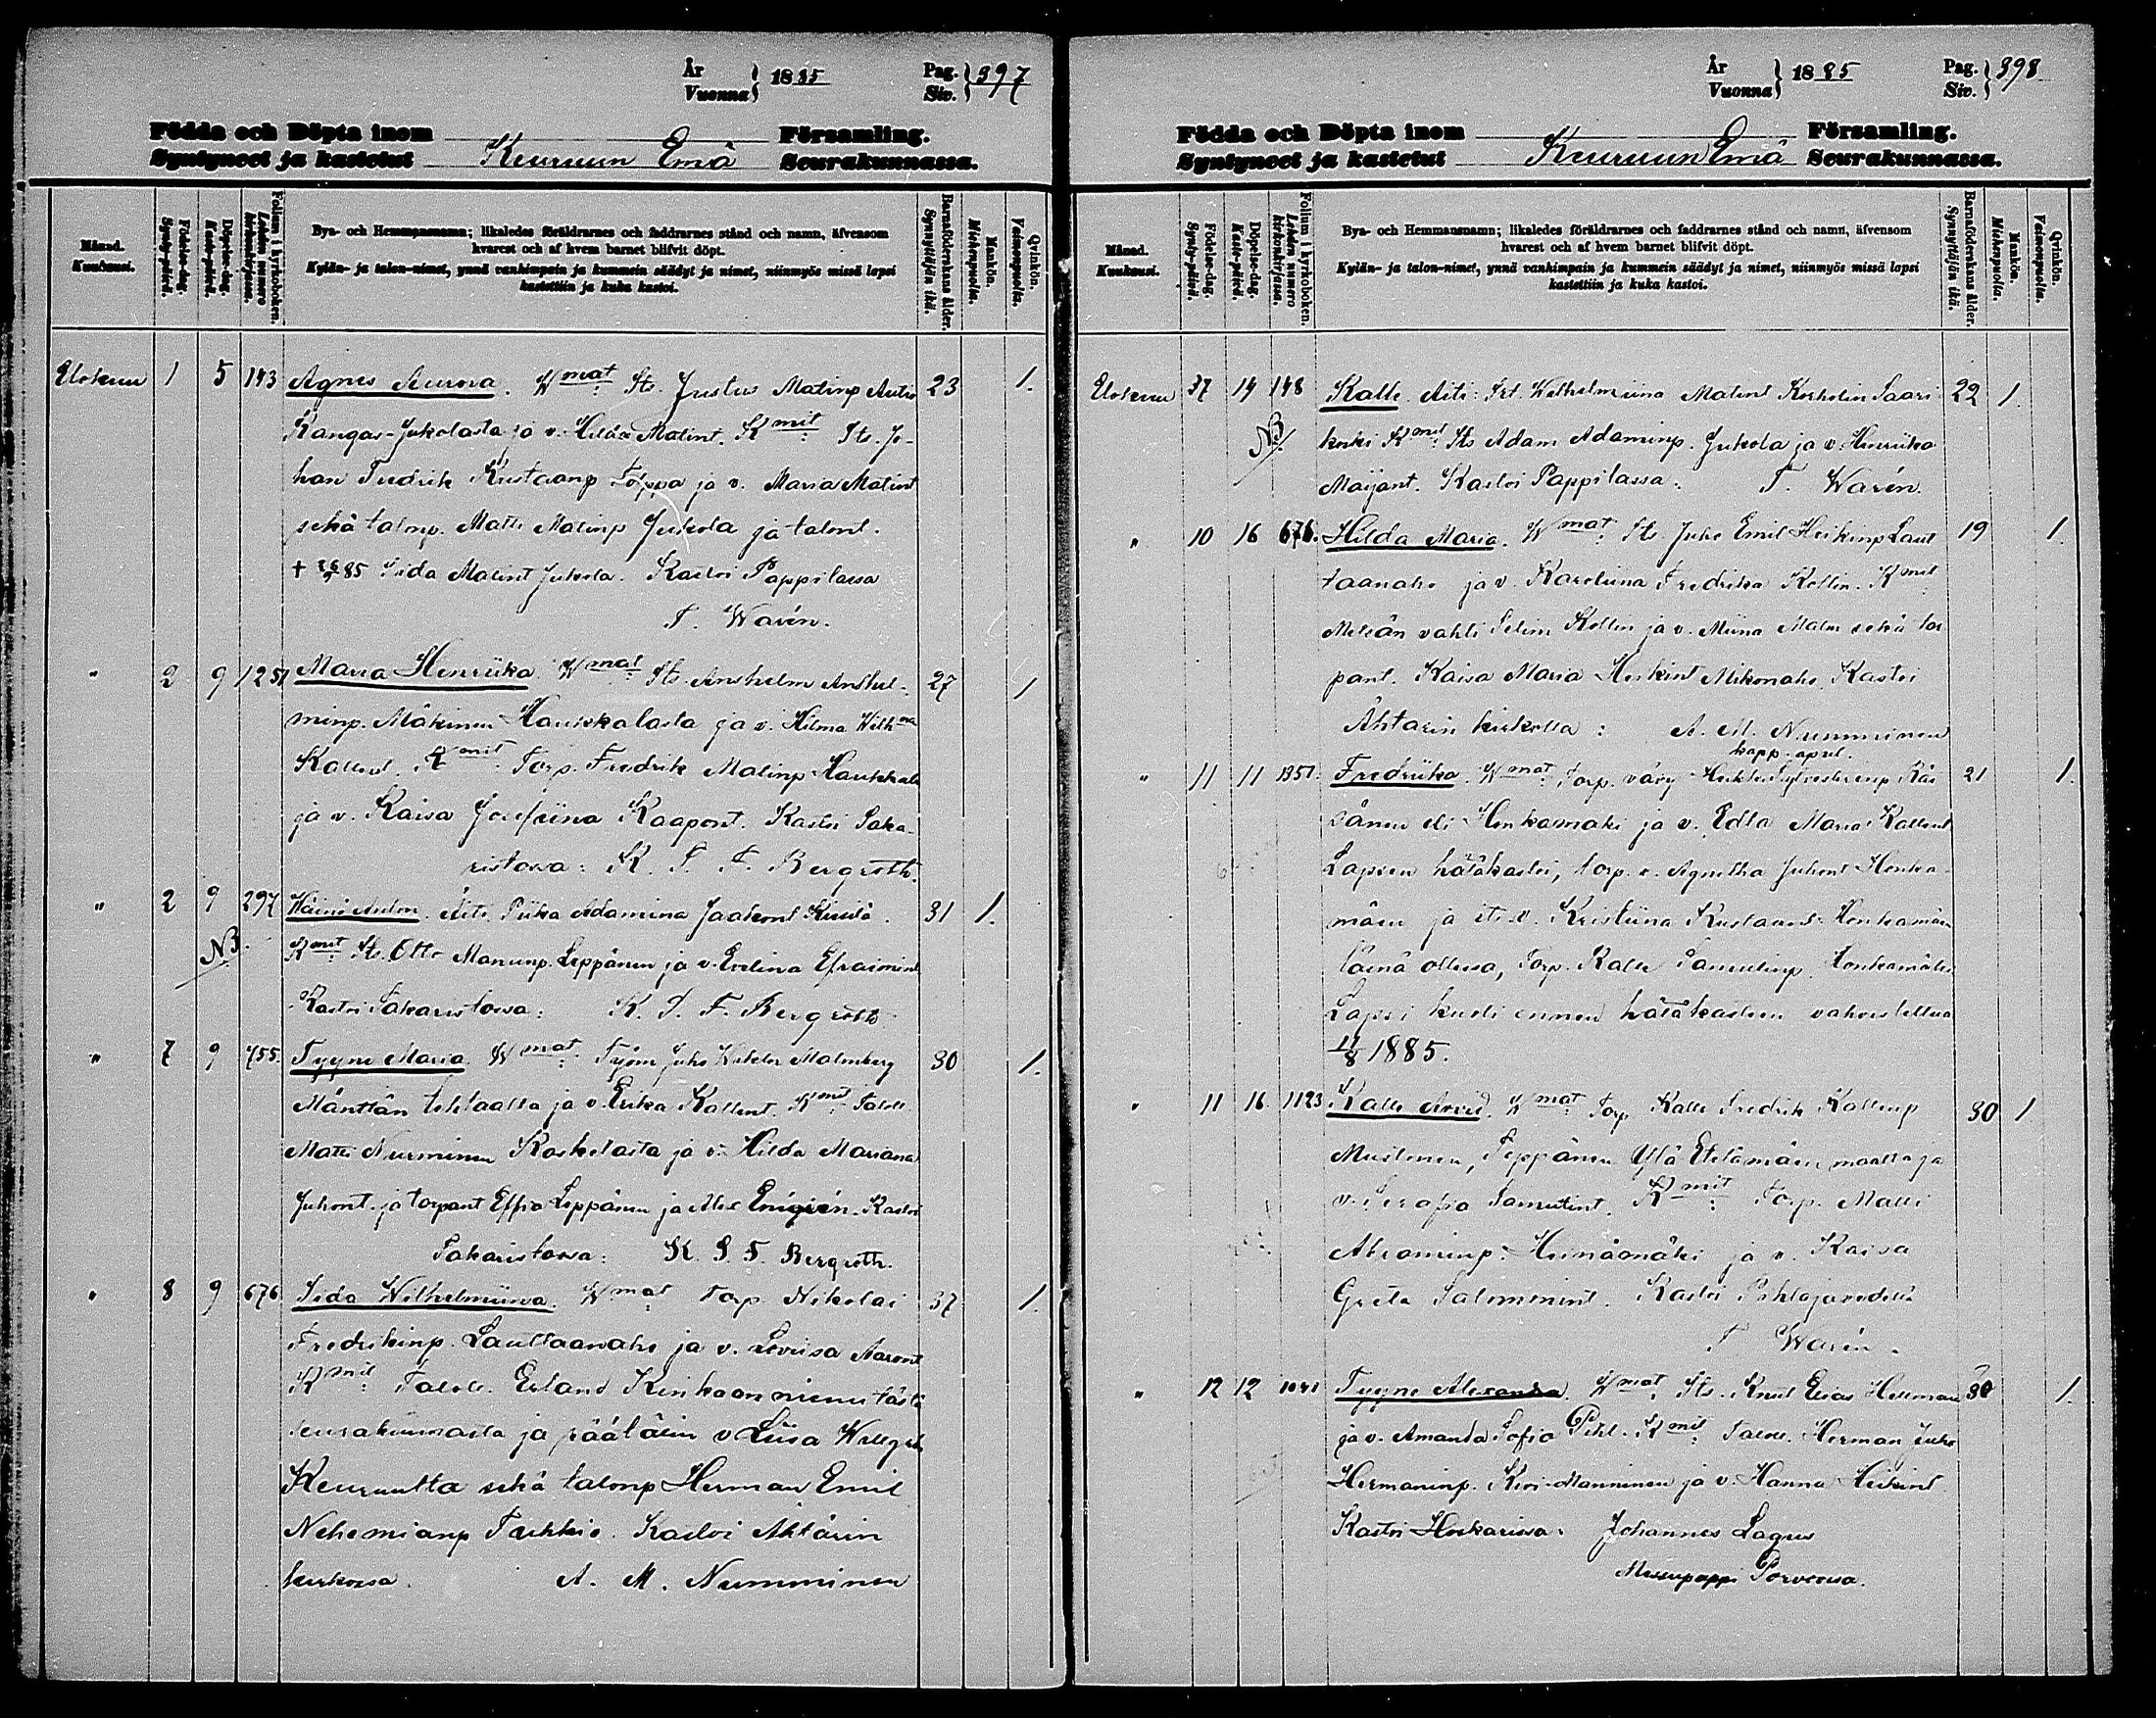 År
Vuonna } 1885 Pag.
Siv. } 397
Födda och Döpta inom Församling.
Syntyneet ja kastetut Keuruun Emä Seurakunnassa.
Månad.
Kuukausi.
Födelse-dag.
Synty-päivä.
Döpelse-dag.
Kaste-päivä.
Folium i kyrkoboken.
Lehden numero kirkonkirjassa.
Bya- och Hemmansnamn; likaledes föräldrarnes och faddrarnes stånd och namn, äfvensom
hvarest och af hvem barnet blifvit döpt.
Kylän- ja talon-nimet, ynnä vanhimpain ja kummein säädyt ja nimet, niinmyös missä lapsi
kastettiin ja kuka kastoi.
Barnaföderskans ålder.
Synnyttäjän ikä.
Mankön.
Miehenpuolia.
Qvinkön.
Vaimonpuolia.
Elokuu 1 5 143 Agnes Aurora. Wmat: Its. Justus Matinp Autio 23 1.
Kangas-Jukolasta ja v. Hilda Matint. Kmit: Its. Jo-
han Fredrik Kustaanp Töppä ja v. Maria Matint
sekä talonp. Matti Matinp Jukola ja talont.
+ 85 Iida Matint Jukola. Kastoi Pappilassa
T. Warén.
" 2 9 1251 Maria Henriika. Wmat: Its. Anshelm Anshel- 27 1
minp. Mäkinen Haukkalasta ja v. Hilma Wilh
Kallent. Kmit: Torp. Fredrik Matinp Haukkala
ja v. Kaisa Josefiina Kaapont. Kastoi Saka-
ristossa: K. J. F. Bergroth.
" 2 9 297 Wäinö Anton. Äiti: Piika Adamina Jaakont 31 1.
NB. Kmit: Its. Otto Manunp. Leppänen ja v. Evelina Efraimint
Kastoi Sakaristossa: K. J. F. Bergroth
" 7 9 755. Tyyne Maria. Wmat: Työm Juho Malmberg 30 1.
Mänttän tehtaalta ja v. Erika Kallent. Kmit: Taloll.
Matti Nurminen Koskelasta ja v. Hilda Mariana
Juhont. ja torpant Leppänen ja Kastoi
Sakaristossa: K. J. F. Bergroth.
" 8 9 676 Iida Wilhelmiina. Wmat: Torp Nikolai 37 1.
Fredrikinp. Lauttaanaho ja v. Loviisa Aaront
Kmit: Taloll. Erland Kinkaanniemi tästä
seurakunnasta ja räätälin v. Liisa
Keuruulta sekä talonp Herman Emil
Nehemianp Tuhkio. Kastoi Ähtärin
kirkossa. A. M. Numminen
År
Vuonna } 1885 Pag.
Siv. } 398
Födda och Döpta inom Församling.
Syntyneet ja kastetut Keuruun Emä Seurakunnassa.
Månad.
Kuukausi.
Födelse-dag.
Synty-päivä.
Döpelse-dag.
Kaste-päivä.
Folium i kyrkoboken.
Lehden numero kirkonkirjassa.
Bya- och Hemmansnamn; likaledes föräldrarnes och faddrarnes stånd och namn, äfvensom
hvarest och af hvem barnet blifvit döpt.
Kylän- ja talon-nimet, ynnä vanhimpain ja kummein säädyt ja nimet, niinmyös missä lapsi
kastettiin ja kuka kastoi.
Barnaföderskans ålder.
Synnyttäjän ikä.
Mankön.
Miehenpuolia.
Qvinkön.
Vaimonpuolia.
Elokuu 14 148 Kalle. Äiti: Wilhelmiina Matint Saari- 22 1.
NB. koski Kmit: Its Adam Adaminp. Jukola ja v. Henriika
Maijant. Kastoi Pappilassa: T. Warén.
" 10 16 676. Hilda Maria. Wmat: Its. Juho Emil Heikinp Laut 19 1.
taanaho ja v. Karoliina Fredrika Kollin. Kmit
Metsän vahti Selim Kollin ja v. Miina Malm sekä tor
pant. Kaisa Maria Heikint Mikonaho. Kastoi
Ähtärin kirkolla: A. M. Numminen
kapp. apul.
" 11 11 1351. Fredriika. Wmat: Torp. vävy Heikki Sylvesterinp 21 1.
sänen eli Honkamäki ja v. Edla Maria Kallent
Lapsen hätäkastoi, torp. v. Agnetha Juhont Honka-
mäen ja its. v. Kristiina Kustaant Honkamäen
läsnä ollessa, Torp. Kalle Samulinp. Honkamäki
Lapsi kuoli ennen hätäkasteen vahvistettua
11/8 1885.
" 11 16. 1123. Kalle Arvid. Wmat: Torp Kalle Fredrik Kallenp 30 1
Mustonen, Seppänen Ylä Eteläniemen maalta ja
v. Serafia Samulint. Kmit: Torp. Matti
Abraminp. Heinäamäki ja v. Kaisa
Greta Salomonint. Kastoi Pihlajavedellä
T. Warén.
" 12 12 1041 Tyyne Alexandra. Wmat: Its. Knut Elias Hellman 30 1.
ja v. Amanda Sofia Pihl. Kmit: Taloll. Herman Juho
Hermaninp. Kivi-Manninen ja v. Hanna Heikint
Kastoi Hoskarissa: Johannes Lagus
Messupappi Porvoossa.